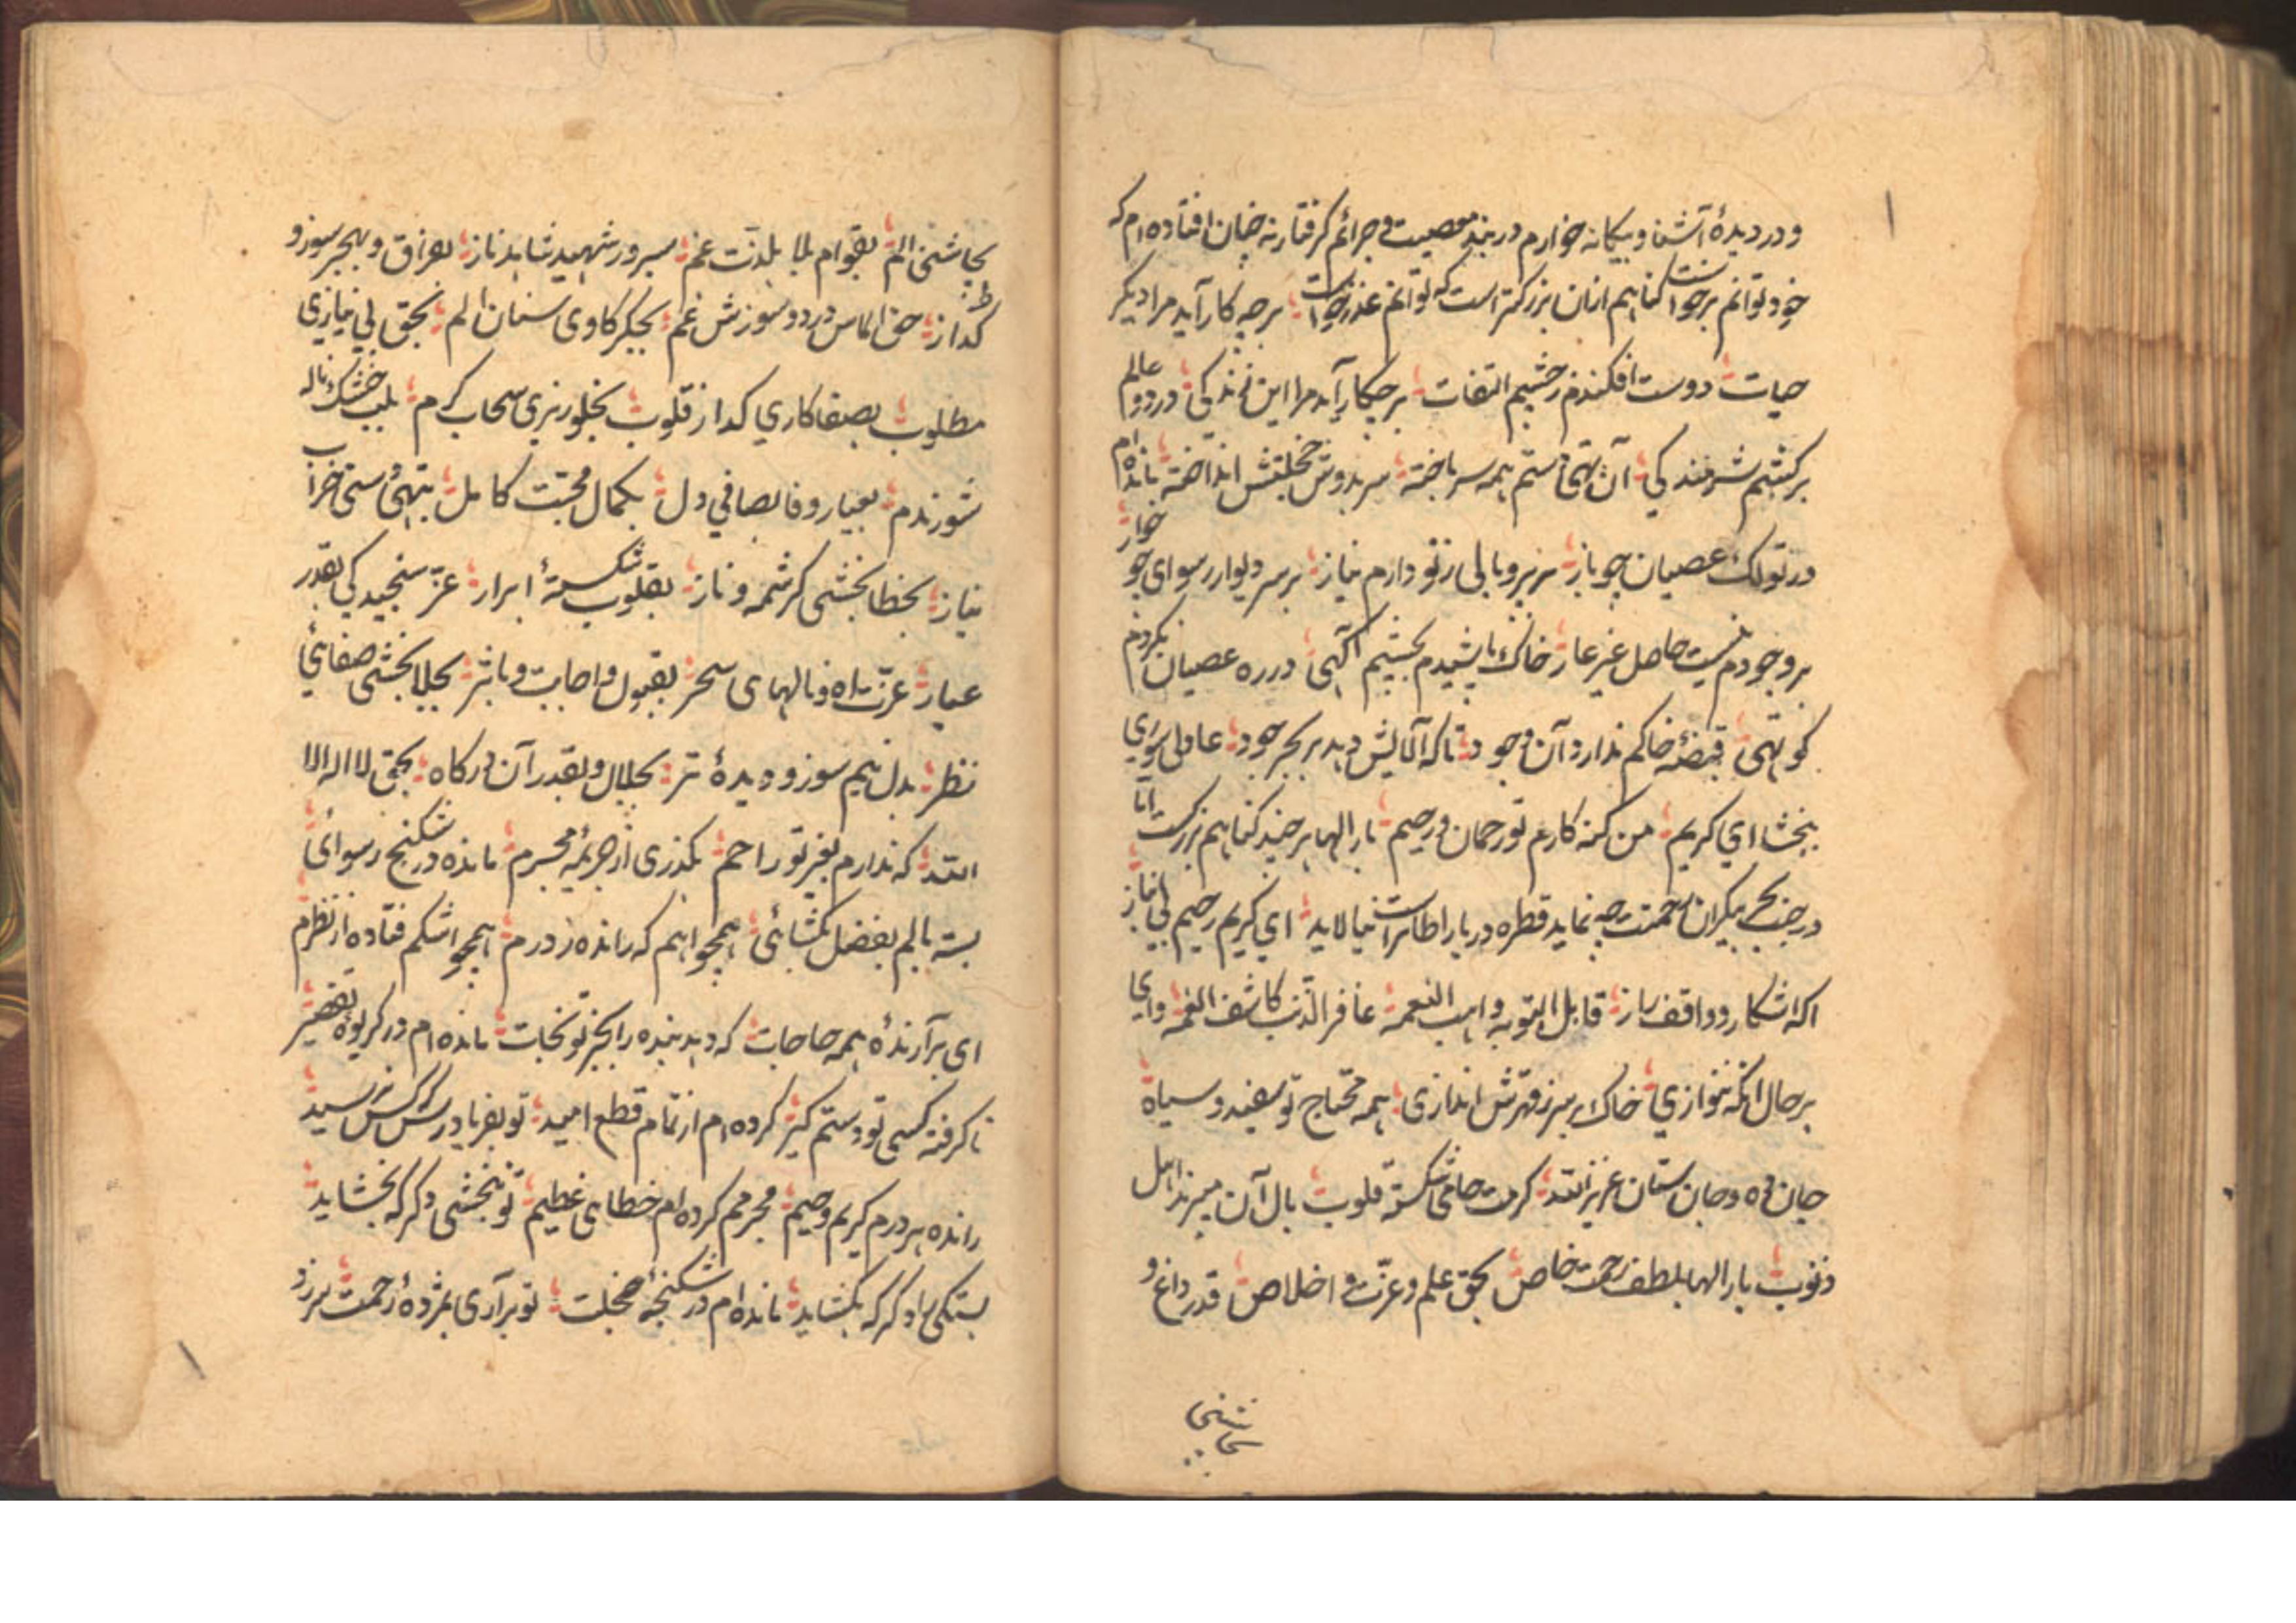 و در دیدهٔ آشنا و بیگانه خوارم در بند معصیت و جرائم گرفتار نه چنان افتاده ام که
خود توانم برخواست گناهم ازان بزرگتر است که توانم عذر خواست برچه کار آید مرا دیگر
حیات دوست افکندم زچشم التفات برچکار آید مرا این زندگی در دو عالم
برکشم شرمندگی آن تهی دستم همه سرباخته سر بدوش خجلتش انداخته مانده ام
در تولک عصیان چو باز بر پر و بالی زتو دارم نیاز بر سر دیوار رسوای چو خوار
بر وجودم نیست حاصل غیر عار خاک پاشیدم بچشم آگهی در ره عصیان نکردم
کوتهی قبضهٔ خاکم ندارد آن وجود تا که آلایش دهد بر بحر جود عاملی سوای
ببخشا ای کریم من گنه کارم تو رحمان و رحیم بار الها هرچند گناهم بزرگست اما
در جنب بحر بیکران رحمتت چه نماید قطره دریا را طاس است نیالاید ای کریم رحیم بی نیاز
اگه اشکار و واقف راز قابل التوبه واهب النعمه غافر الذنب کاشف الغمه وای
برحال انکه ننوازی خاک بر سر ز قهرش اندازی همه محتاج تو سفید و سیاه
جان ده و جان ستان عزیز الله کرمت حامی شکسته قلوب بال آن میزند اهل
ذنوب بار الها بلطف رحمت خاص بحق علم و عزت و اخلاص قدر داغ و
بچاشنی
بچاشنی الم بقوام بلا بلذت غم بسرور شهید شاهد ناز بفراق و بهجر سوز و
گداز بحق الماس درد و سوزش غم بجگر کاوی سنان الم بحق بی نیازی
مطلوب بصفا کاری گداز قلوب بجلوریزی سحاب کرم بلب خشک ناله
شورزدم بعیار وفا بصافی دل بکمال محبت کامل بتهی دستی خراب
نیاز بخطا بخشی کرشمه و ناز بقلوب شکستهٔ ابرار عز سنجیدگی بقدر
عیار عزت اه و نالهای سحر بقبول و اجابت و باثر بجلا بخشی صفائی
نظر بدل نیم سوز و دیدهٔ تر بجلال و بقدر آن درگاه بحق لا اله الا
الله که ندارم بغیر تو راحم بگذری از جریمه مجرم مانده در شکنج رسوائی
بسته بالم بفضل بگشائی همچو اهم که رانده ز درم همچو اشکم فتاده از نظرم
ای برآرندهٔ همه حاجات که دهد بنده را بجز تو نجات مانده ام در گریوهٔ تقصیر
ناگرفته کسی تو دستم گیر کرده ام از تمام قطع امید تو بفریاد رس که کس نرسید
رانده هر درم کریم و حیم مجرمم کرده ام خطای عظیم تو نبخشی دگر که بخشاید
بستگی را دگر که بگشاید مانده ام در شکنجهٔ خجلت تو برآری بمژدهٔ رحمت بر زد